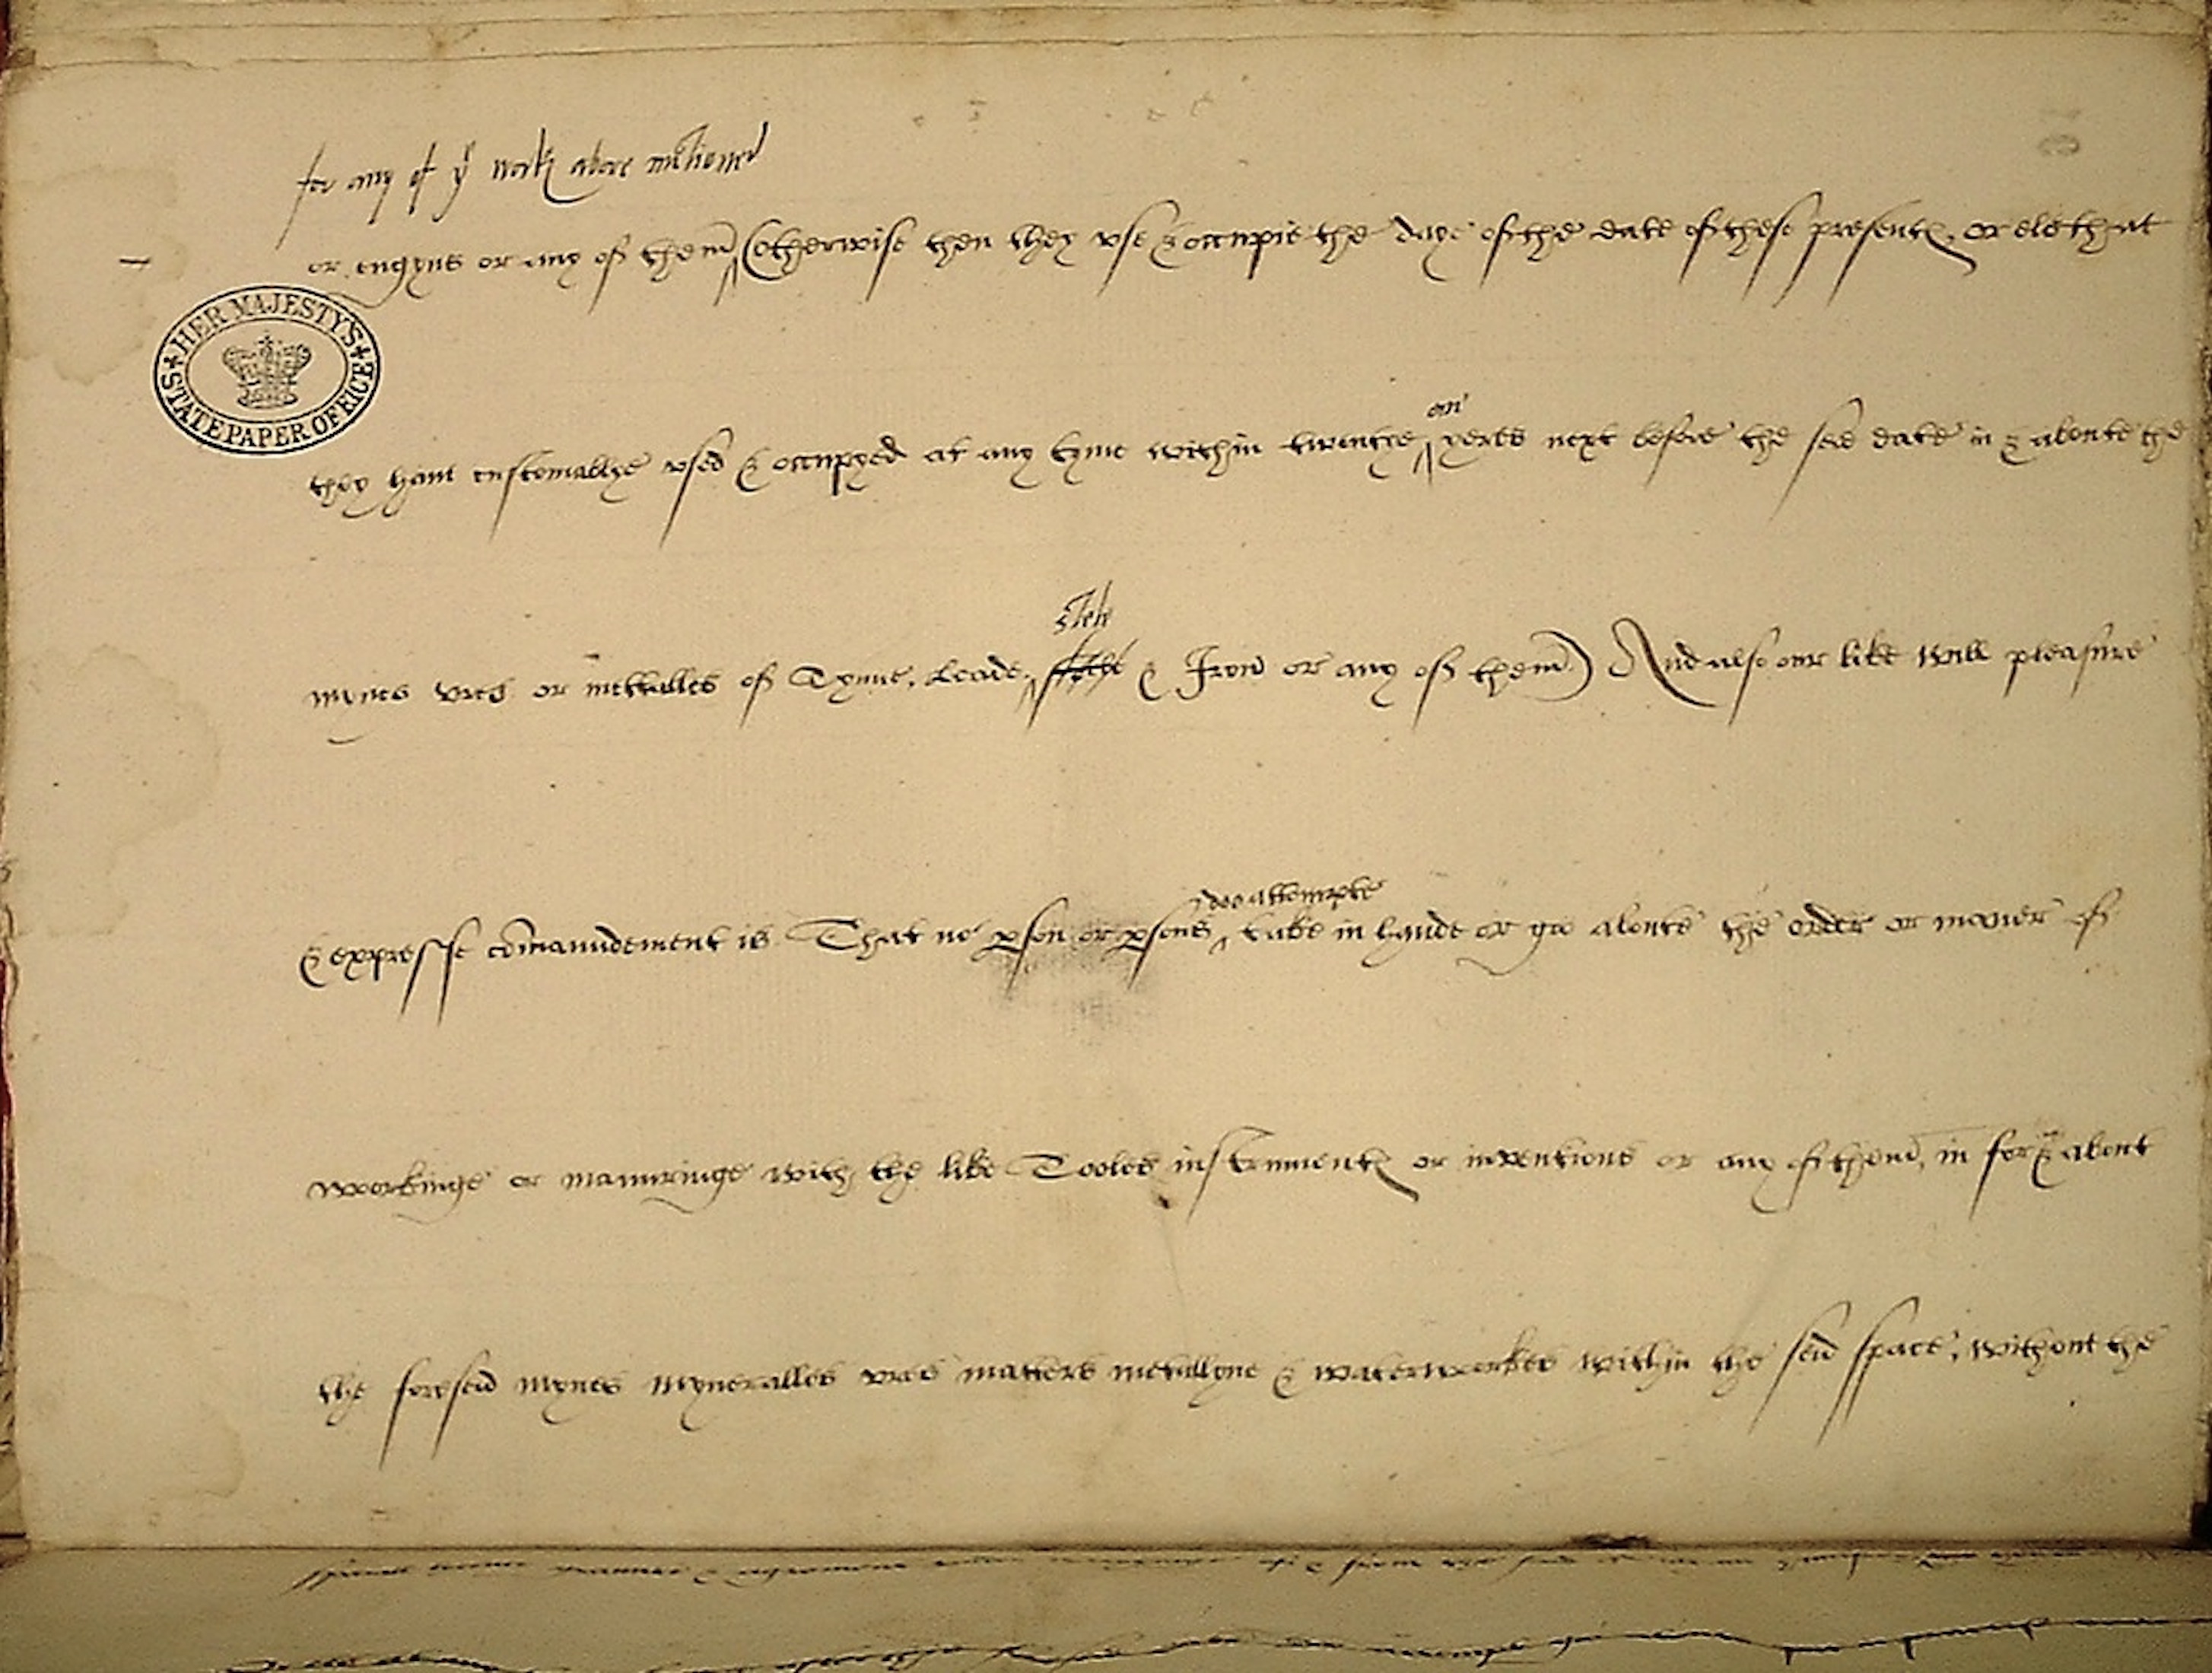 for any of yͤ works above mētioned
or engyns or any of them (otherwise then they vse & occupie the daye of the date of these presentes, or els that
HER MAJESTY'S STATE PAPER OFFICE
on
they haue customablye vsed & occupyed at any tyme within twentye yeres next before the seid date in & aboute the
stele
mynes vres or mettalles of Tynne, Leade, & Iron or any of them) And also our like will pleasure
, doo attempte
& expresse cōmaundement is That no pson or psons take in hande or go aboute the order or maner of
workinge or manuringe with the like Tooles instrumentes or inventions or any of them, in for & about
the foreseid mynes myneralles vres matters metallyne & waterworkes within the seid space, without the